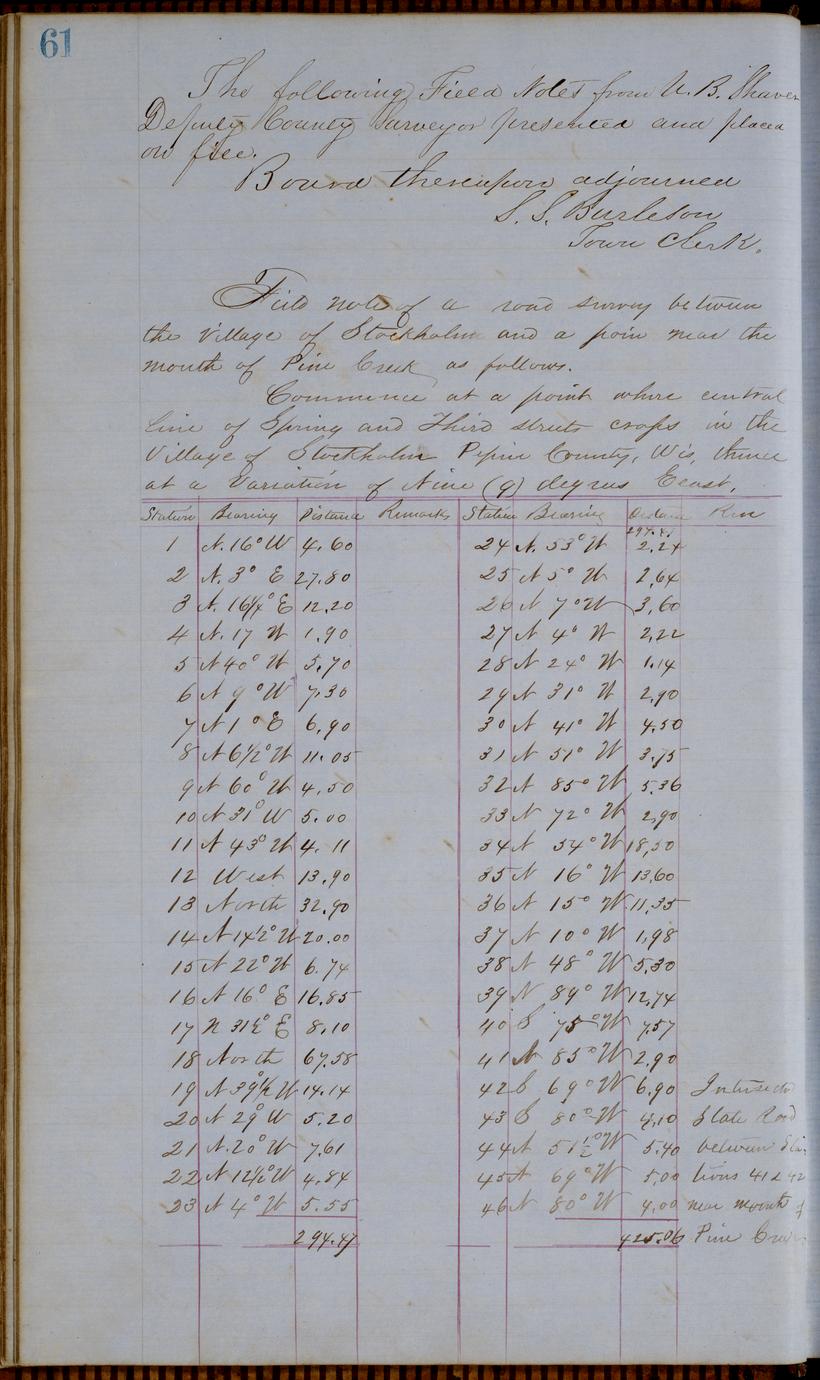 61
The following Field Notes from U. B. Shaver
Deputy County Surveyor presented and placed
on file.
Board thereupon adjourned
S. S. Burleson
Town Clerk.
Field note of a road survey between
the Village of Stockholm and a poin near the
mouth of Pine Creek as follows.
Commence at a point where central
line of Spring and Third streets cross in the
Village of Stockholm Pepin County, Wis, thence
at a Variation of Nine (9) degrees East,
Station Bearing Distance Remarks Station Bearing Distance Rem
294.47
1 N. 16° W 4.60 24 N. 53° W 2.24
2 N. 3° E 27.80 25 N 5° W 2,64
3 N. 16¼° E 12.20 26 N 7° W 3,60
4 N. 17 W 1.90 27 N 4° W 2,22
5 N 40° W 5.70 28 N 24° W 1.14
6 N 9° W 7.30 29 N 31° W 2,90
7 N 1° E 6.90 30 N 41° W 4.50
8 N 6½° W 11.05 31 N 51° W 3.75
9 N 60° W 4.50 32 N 85° W 5.36
10 N 31° W 5.00 33 N 72° W 2,90
11 N 43° W 4.11 34 N 54° W 18,50
12 West 13.90 35 N 16° W 13,60
13 North 32.90 36 N 15° W 11,35
14 N 14½° W 20.00 37 N 10° W 1,98
15 N 22° W 6.74 38 N 48° W 5,30
16 N 16° E 16.85 39 N 89° W 12,74
17 N 31½° E 8.10 40 S 75° W 7,57
18 North 67.58 41 N 85° W 2.90
19 N 39½ W 14.14 42 S 69° W 6.90 Intersects
20 N 29° W 5.20 43 S 80° W 4,10 State Road
21 N. 20° W 7.61 44 N 51½° W 5.40 between Sta-
22 N 12½° W 4.84 45 N 69° W 5,00 tions 41 & 42
23 N 4° W 5.55 46 N 80° W 4,00 near mouth of
294.47 425.06 Pine Creek